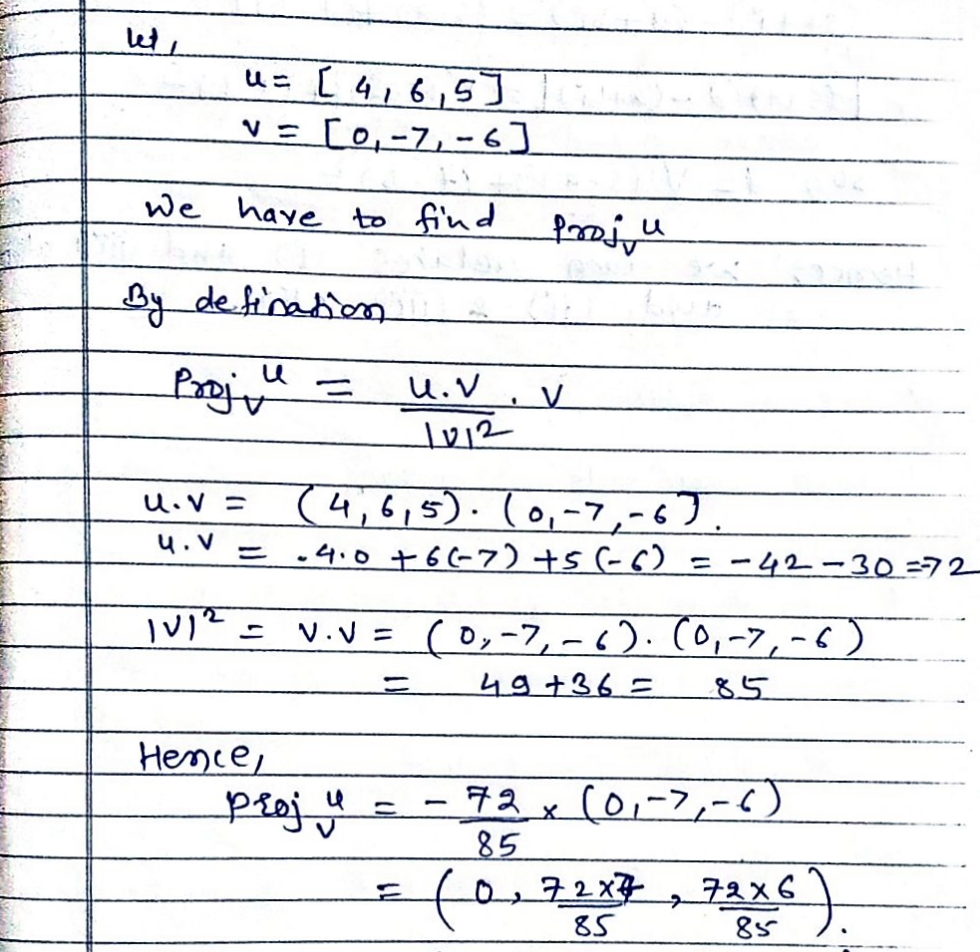 let,
u = [ 4, 6, 5 ]
v = [ 0, -7, -6 ]
We have to find Proj_v u
By defination
Proj_v u = u.v / |v|² . v
u.v = (4, 6, 5) . (0, -7, -6].
u.v = .4.0 + 6(-7) + 5(-6) = -42 - 30 = -72
|v|² = v.v = (0, -7, -6). (0, -7, -6)
= 49 + 36 = 85
Hence,
Proj_v u = - 72/85 × (0, -7, -6)
= ( 0, 72×7/85 , 72×6/85 ).